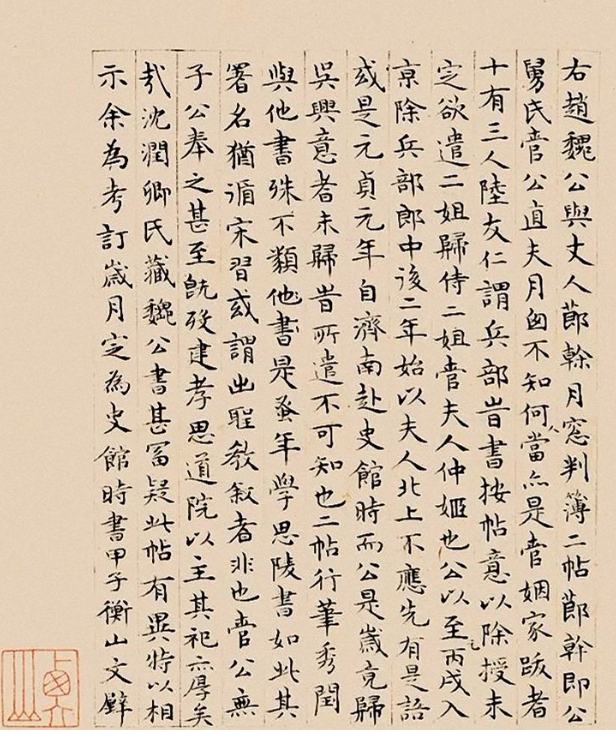 右趙魏公與丈人莭榦月窓判簿二帖莭幹即公
舅氏管公直夫月囪不知何人當亦是管姻家跋者
十有三人陸友仁謂兵部旹書按帖意以除授未
定欲遣二姐歸侍二姐管夫人仲姬也公以至元丙戌入
京除兵部郎中後二年始以夫人北上不應先有是語
或是元貞元年自濟南赴史館時而公是歲竟歸
吳興意者未歸旹所遣不可知也二帖行筆秀潤
與他書殊不類他書是蚤年學思陵書如此其
署名猶循宋習或謂出聖教敘者非也管公無
子公奉之甚至既歿建孝思道院以主其祀亦厚矣
哉沈潤卿氏藏魏公書甚富疑此帖有異特以相
示余為考訂歲月定為史館時書甲子衡山文壁